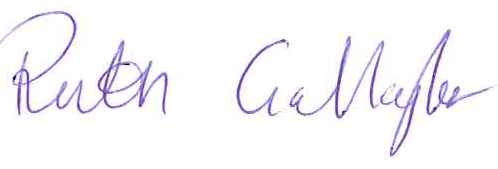 Ruth Gallagher